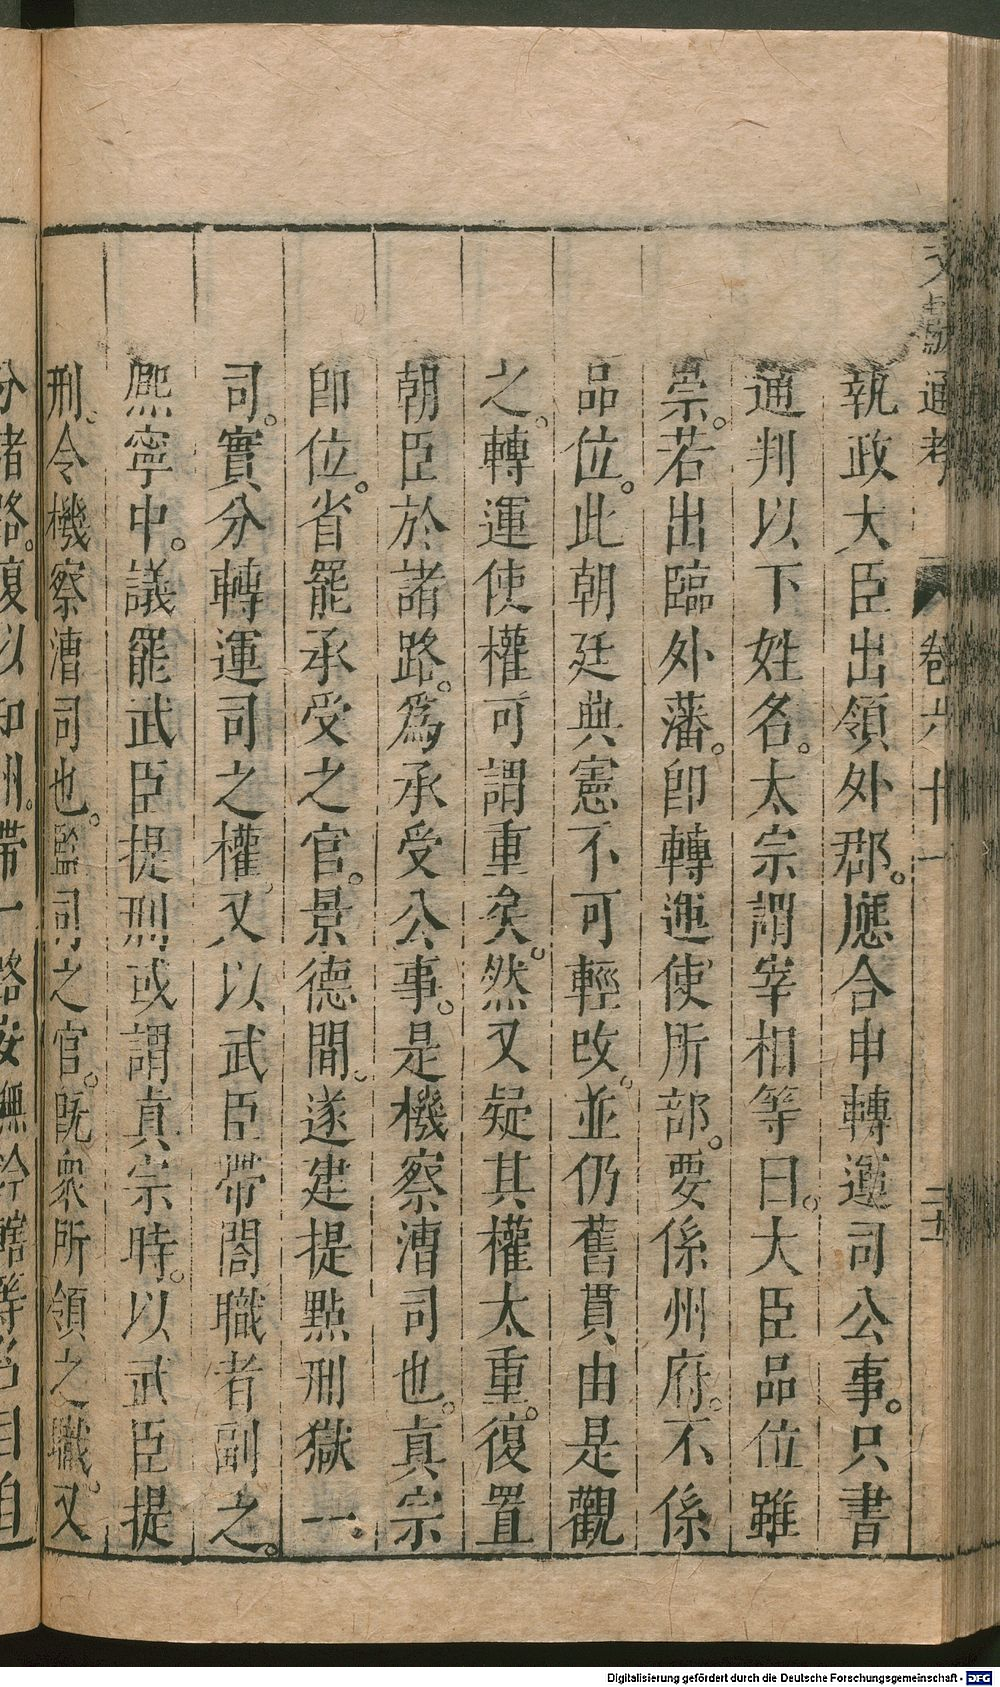 文獻通考 卷六十一 二十
執政大臣出領外郡。應合申轉運司公事。只書
通判以下姓名。太宗謂宰相等曰。大臣品位雖
崇。若出臨外藩。卽轉運使所部。要係州府。不係
品位。此朝廷典憲不可輕改。並仍舊貫由是觀
之。轉運使權可謂重矣。然又疑其權太重。復置
朝臣於諸路。爲承受公事。是機察漕司也。真宗
卽位。省罷承受之官。景德間。遂建提點刑獄一
司。實分轉運司之權。又以武臣帶閤職者副之。
熈寧中。議罷武臣提刑或謂真宗時。以武臣提
刑。令機察漕司也。監司之官。旣衆所領之職。又
分諸路。復以知州。帶一路安撫鈐轄等名目自
Digitalisierung gefördert durch die Deutsche Forschungsgemeinschaft - DFG